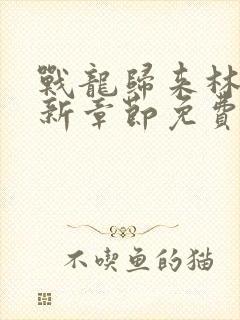 戰龍歸來林
新章節免費
不喫魚的猫